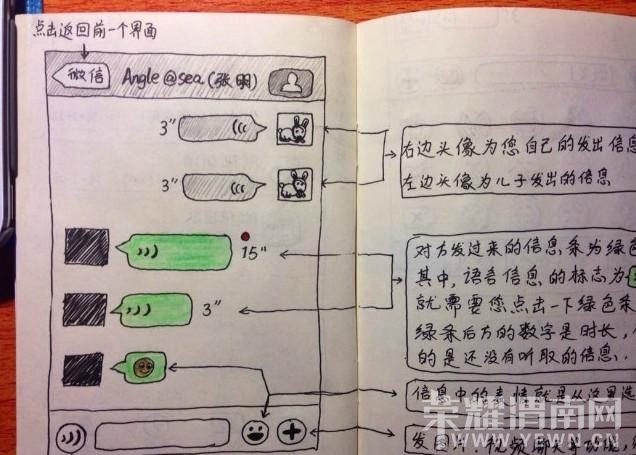 点击返回前一个界面
微信 Angle@sea(张明)
3"
3"
15"
3"
右边头像为您自己的发出信息
左边头像为儿子发出的信息
对方发过来的信息条为绿色
其中,语言信息的标志为
就需要您点击一下绿色条
绿条后方的数字是时长,
的是还没有听取的信息.
信息中的表情就是从这里选
发图片、视频聊天等功能,
荣耀渭南网